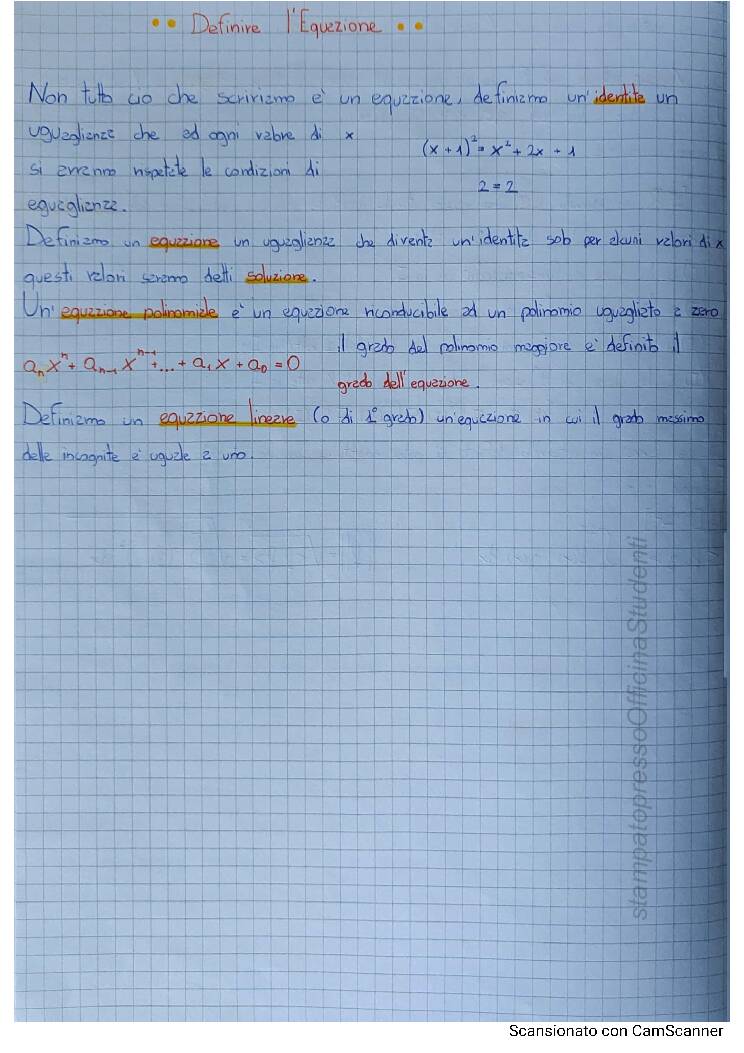 Definire l'Equazione
Non tutto ciò che scriviamo è un equazione, definiamo un'identità un
uguaglianza che ad ogni valore di x
si avranno rispetate le condizioni di
eguaglianza.
(x + 1)² = x² + 2x + 1
2 = 2
Definiamo un equazione un uguaglianza che diventa un'identità solo per alcuni valori di x
questi valori saranno detti soluzione.
Un'equazione polinomiale è un equazione riconducibile ad un polinomio uguagliato a zero
aₙxⁿ + aₙ₋₁xⁿ⁻¹+...+ a₁x + a₀ = 0
il grado del polinomio maggiore è definito il
grado dell'equazione.
Definiamo un equazione lineare (o di 1° grado) un'equazione in cui il grado massimo
delle incognite è uguale a uno.
stampatopressoOfficinaStudenti
Scansionato con CamScanner